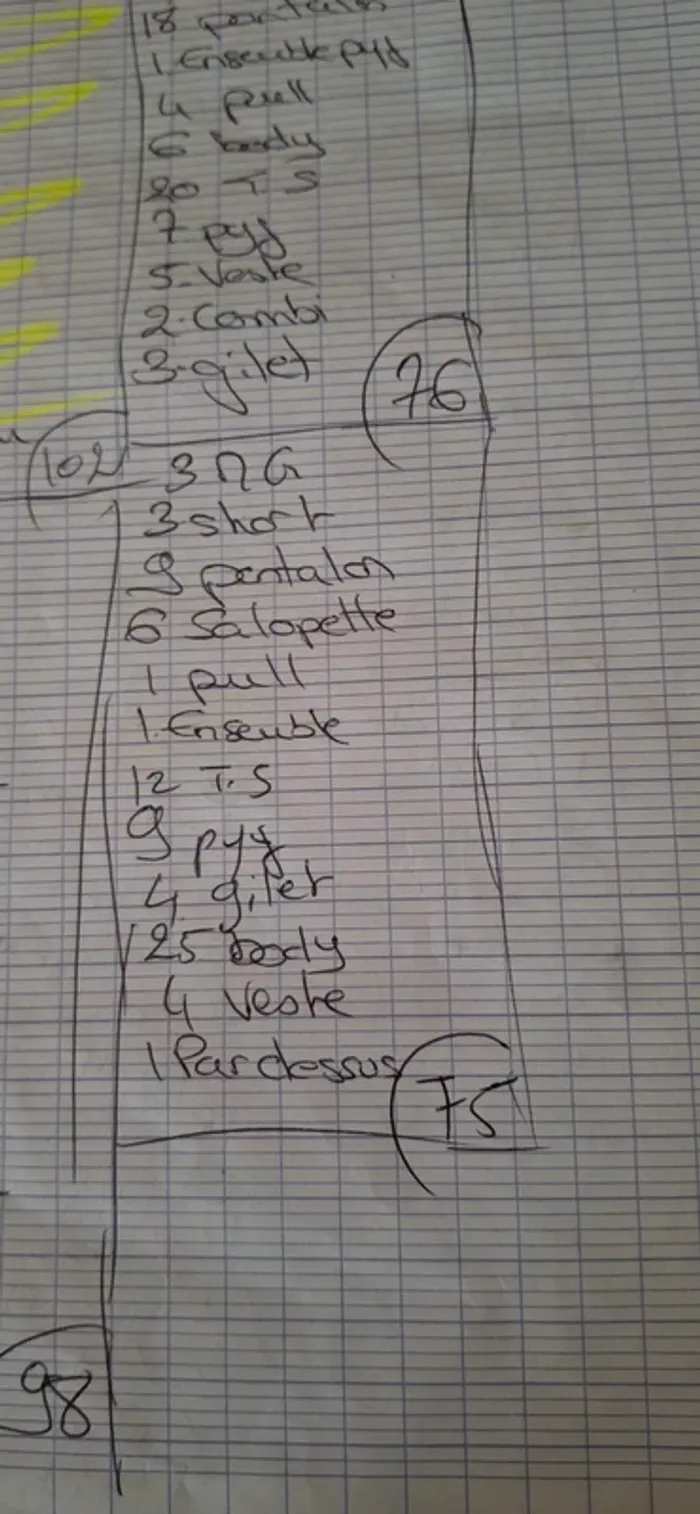 18 pantalon
1 Ensemble pyj
4 pull
6 body
20 T S
7 pyj
5. Veste
2. Combi
3. gilet
76
102
3 MG
3 short
9 pantalon
6 Salopette
1 pull
1. Ensemble
12 T.S
9 pyj
4 gilet
25 body
4 Veste
1 Pardessus
75
98